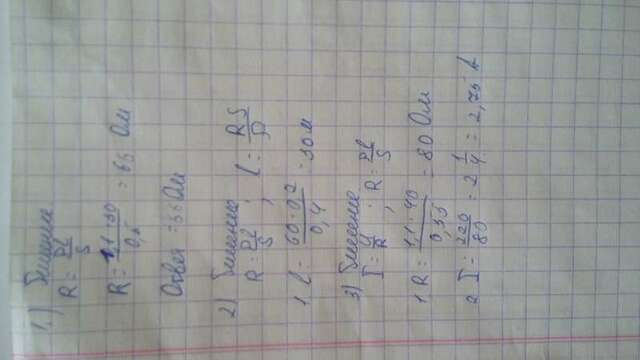 1.) Решение
R = ρl/S
R = 1,1·30/0,5 = 66 Ом
Ответ = 66 Ом
2) Решение
R = ρl/S ; l = RS/ρ
1 l = 60·0,2/0,4 = 30 м
3) Решение
I = U/R ; R = ρl/S
1 R = 1,1·40/0,55 = 80 Ом
2 I = 220/80 = 2 1/4 = 2,75 А